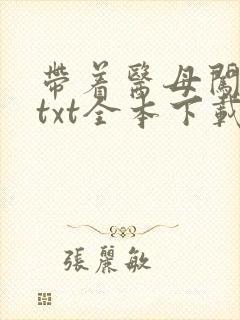 帶着醫母闖
txt全本下載
張麗敏